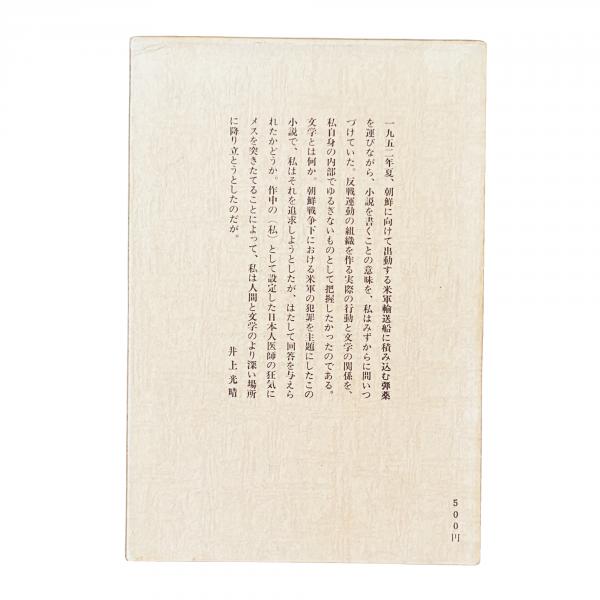 一九五二年夏、朝鮮に向けて出動する米軍輸送船に積み込む弾薬
を運びながら、小説を書くことの意味を、私はみずからに問いつ
づけていた。反戦運動の組織を作る実際の行動と文学の関係を、
私自身の内部でゆるぎないものとして把握したかったのである。
文学とは何か。朝鮮戦争下における米軍の犯罪を主題にしたこの
小説で、私はそれを追求しようとしたが、はたして回答を与えら
れたかどうか。作中の〈私〉として設定した日本人医師の狂気に
メスを突きたてることによって、私は人間と文学のより深い場所
に降り立とうとしたのだが。
井上光晴
500円